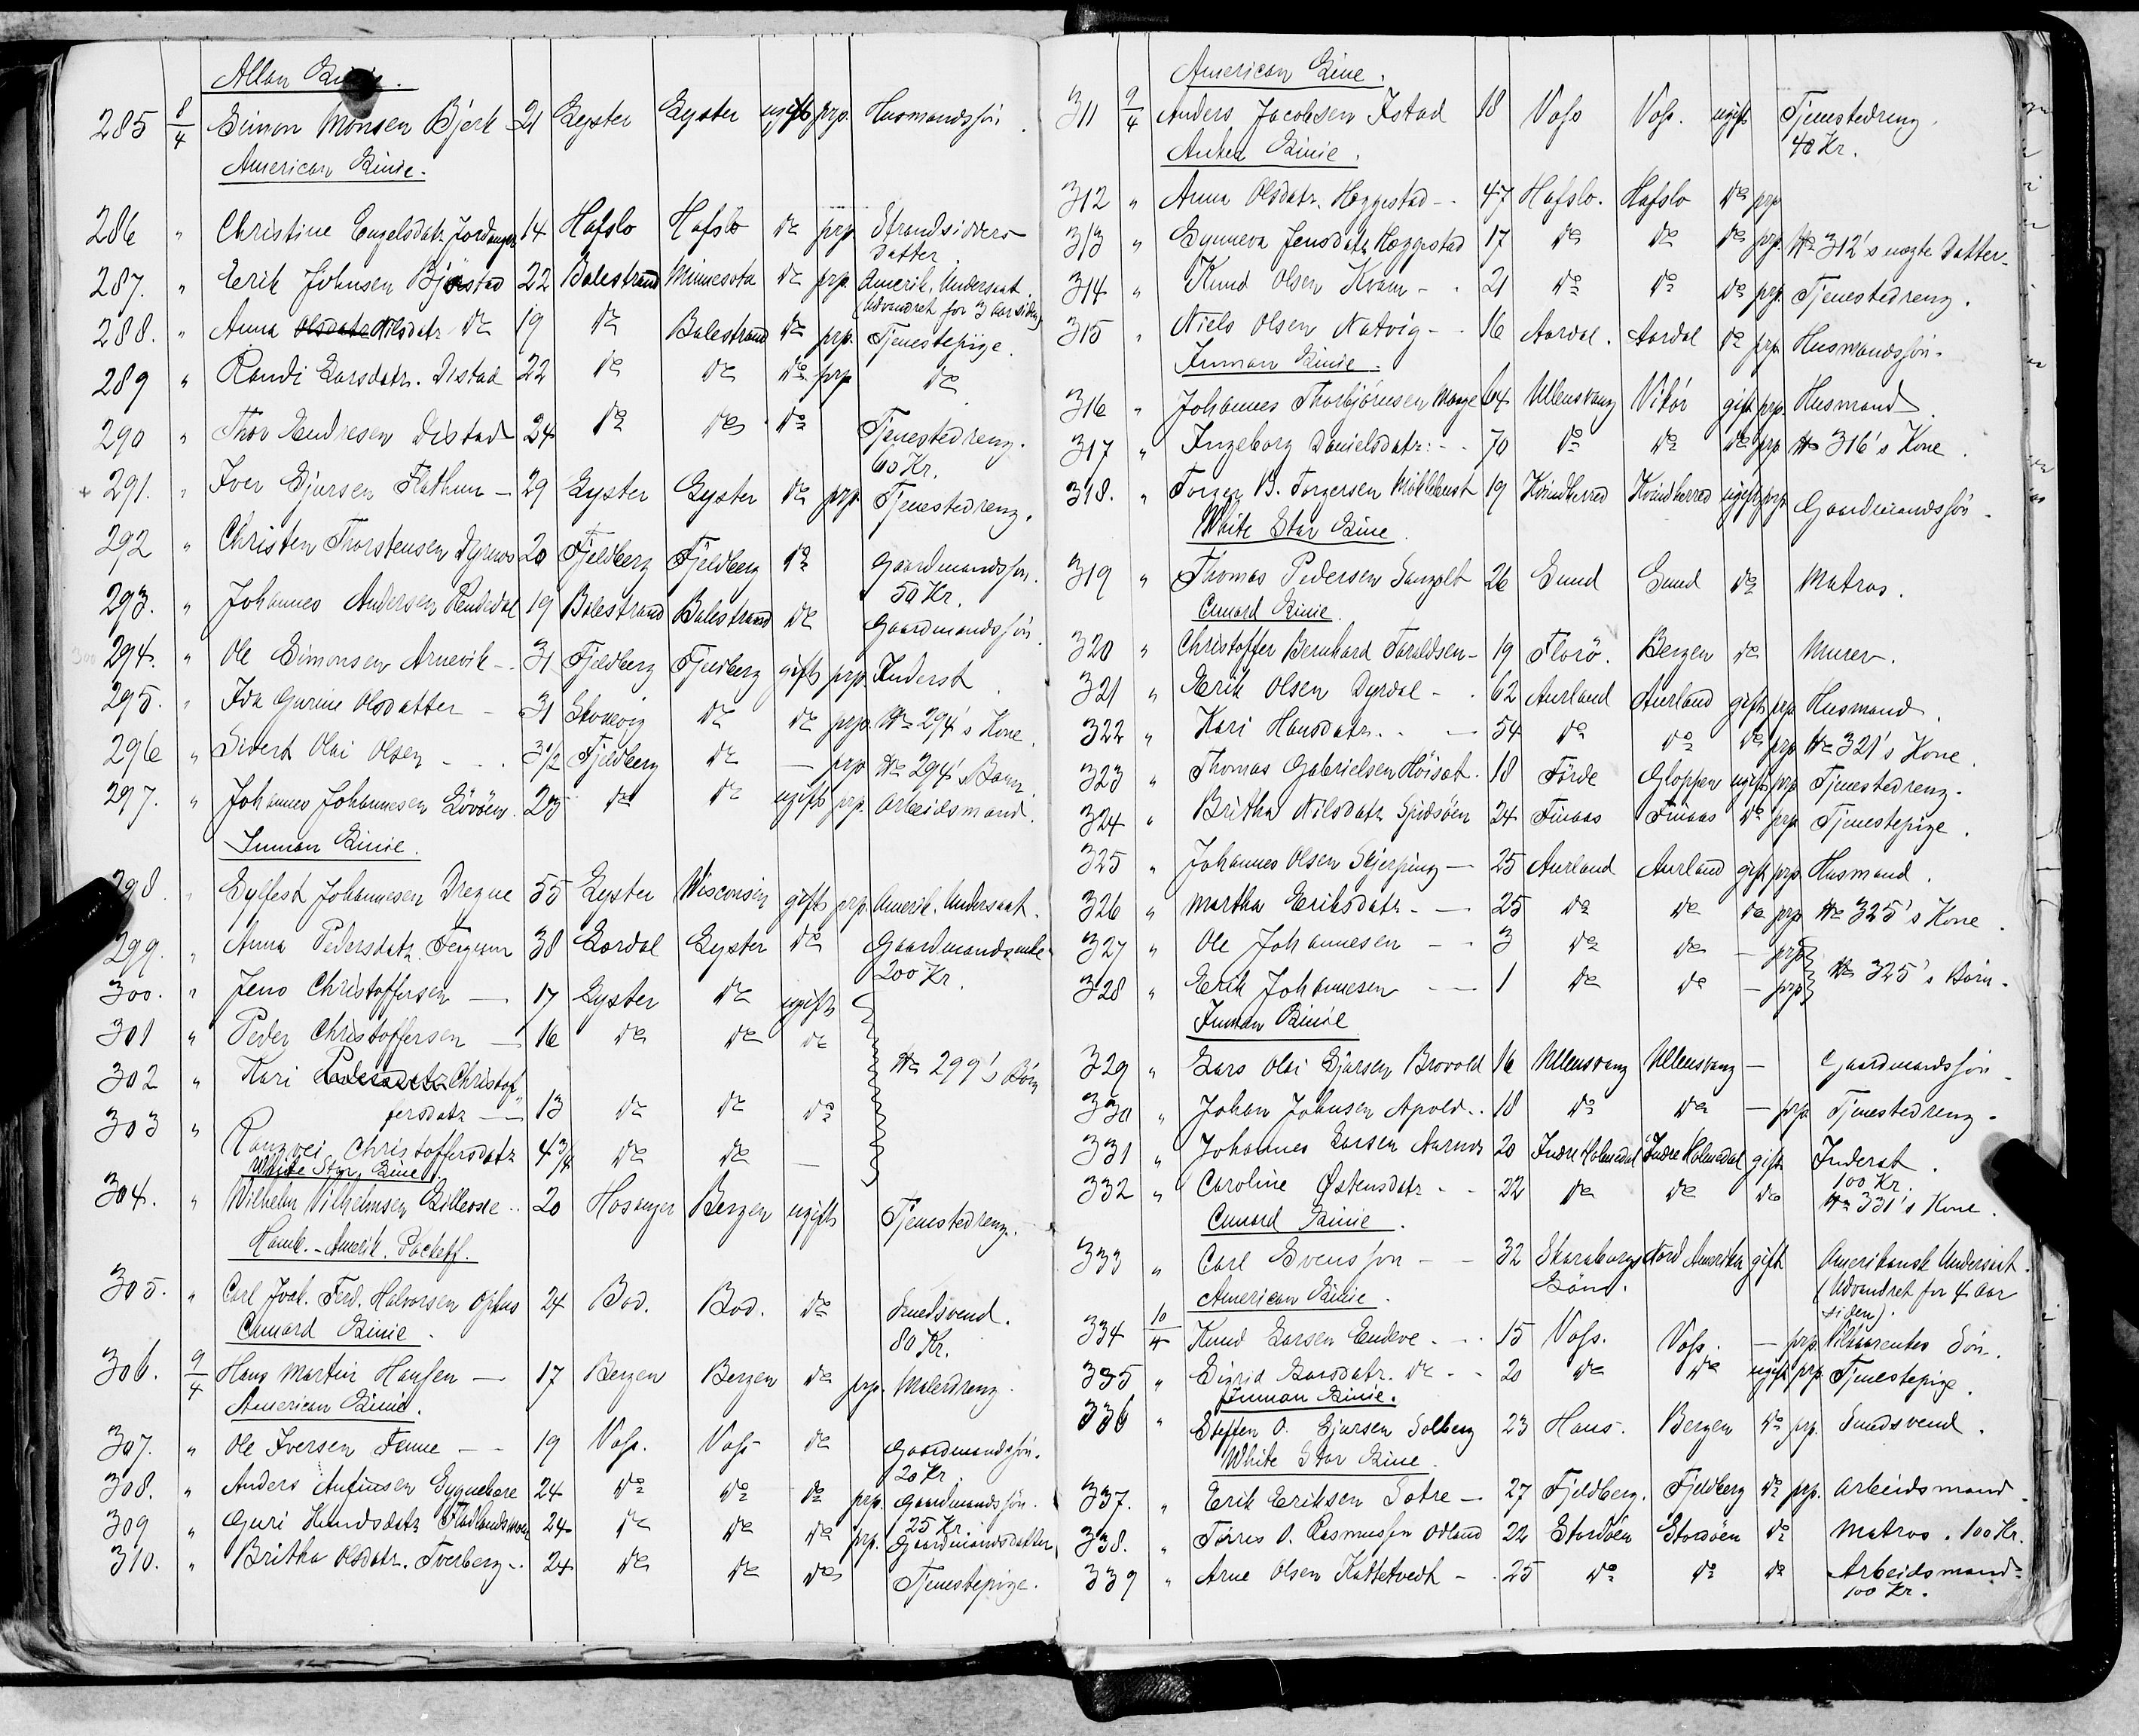 Allan Linie.
285 8/4 Simon Monsen Bjørk 21 Lyster Lyster ugift prp. Husmandssøn.
American Linie.
286 " Christine Engelsdatr. Jordanger 14 Hafslo Hafslo do prp Strandsidders
Datter
287. " Erik Johnsen Bjåstad 22 Balestrand Minnesota do prp. Amerik. Undersaat.
(Udvandret for 3 Aar siden)
288. " Anna Olsdatr Nilsdatr do 19 do Balestrand do prp. Tjenestepige.
289 " Randi Larsdatr. Distad 22 do do do prp do
290 " Thor Endresen Distad 24 do do do Tjenestedreng.
60 Kr.
+ 291. " Iver Gjursen Flathum - 29 Lyster Lyster do prp Tjenestedreng.
292 " Christen Thorstensen Dyrnes 20 Fjeldberg Fjeldberg do Gaardmandssøn.
50 Kr.
293. " Johannes Andersen Rendedal 19 Balestrand Balestrand do Gaardmandssøn.
300 294. " Ole Simonsen Arnevik - 31 Fjeldberg Fjeldberg gift prp Inderst
295. " Ida Gurine Olsdatter - 31 Skonevig do do prp. No 294's Kone.
296 " Sivert Olai Olsen - 3 1/2 Fjeldberg do - prp No 294' Barn.
297. " Johannes Johannesen Løvøen. 23 do do ugift prp. Arbeidsmand.
Inman Linie.
298. " Sylfest Johannesen Dregne 55 Lyster Wisconsin gift prp. Amerik. Undersaat.
299. " Anna Pedersdatr. Fegum 38 Lærdal Lyster do Gaardmandsenke
200 Kr.
300. " Jens Christoffersen - 17 Lyster do ugift
301 " Peder Christoffersen - 16 do do do
No 299's Børn
302 " Kari Pedersdatr Christof-
fersdatr - 13 do do do
303 " Rangvei Christoffersdatr 4 3/4 do do -
White Star Line
304. " Wilhelm Vilhelmsen Lilleosle .. 20 Hosanger Bergen ugift Tjenestedreng.
Hamb. - Amerik. Packetf.
305. " Carl Joak. Ferd. Halvorsen Ophus 24 Bod. Bod. do Smedsvend.
80 Kr.
Cunard Linie.
306. 9/4 Hans Martin Hansen - 17 Bergen Bergen do prp. Malerdreng.
American Linie.
307. " Ole Iversen Fenne - - 19 Voss. Voss do Gaardmandssøn.
20 Kr.
308. " Anders Anfinsen Gygnehare 24 do do do prp. Gaardmandssøn.
25 Kr.
309 " Guri Knudsdatr Flatlandsmoen 24 do do do prp. Gaardmandsdatter
310. " Britha Olsdatr. Tverberg - 24 do do do Tjenestepige.
American Line.
311 9/4 Anders Jacobsen Istad 18 Voss Voss. ugift Tjenestedreng.
40 Kr.
Anker Linie.
312 " Anna Olsdatr. Heggestad - - 47 Hafslo. Hafslo do prp
313 " Synneva Jensdatr. Heggestad 17 do do do prp. No 312's uægte Datter.
314 " Knud Olsen Kvam - - 21 do do do prp. Tjenestedreng.
315 " Niels Olsen Natvig - - 16 Aardal. Aardal do prp. Husmandssøn.
Inman Linie.
316 " Johannes Thorbjørnsen Mauge 64 Ullensvang Vikør gift prp. Husmand.
317 " Ingeborg Danielsdatr. - - 70 do do do prp No 316's Kone.
318. " Torger B. Torgersen Møklebust 19 Kvindherred Kvindherred ugift prp. Gaardmandssøn.
White Star Line
319 " Thomas Pedersen Sangolt 26 Sund Sund do Matros.
Cunard Linie.
320 " Christoffer Bernhard Taraldsen - 19 Florø. Bergen do Murer.
321 " Erik Olsen Dyrdal - . 62 Aurland Aurland gift prp Husmand.
322 " Kari Hansdatr. . - 54 do do do prp No 321's Kone.
323 " Thomas Gabrielsen Høisat. 18 Førde Gloppen ugift prp Tjenestedreng.
324 " Britha Nilsdatr Spidsøen 24 Finaas Finaas do prp Tjenestepige.
325 " Johannes Olsen Skjerping - 25 Aurland Aurland gift prp Husmand.
326 " Martha Eriksdatr. - 25 do do do prp No 325's Kone.
327 " Ole Johannesen - - 3 do do - prp
No 325's Børn.
328 " Erik Johannesen - - 1 do do - prp
Inman Linie
329 " Lars Olai Gjursen Brovold 16 Ullensvang Ullensvang - Gaardmandssøn.
330 " Johan Johnsen Apold.. 18 do do - prp Tjenestedreng.
331 " Johannes Larsen Aarnes 20 Indre Holmedal Indre Holmedal gift Inderst.
100 Kr.
332 " Caroline Østensdatr - - 22 do do do No 331's Kone.
Cunard Linie.
333 " Carl Svensson - - 32 Skaraborgs Nord Amerika gift Amerikansk Undersaat.
Län. (Udvandret for 4 Aar
siden).
American Linie.
334 10/4 Knud Larsen Endeve. - . 15 Voss. Voss. - prp. Vilkaarentes Søn.
335 " Sigrid Larsdatr. do - - 20 do do ugift prp Tjenestepige.
Inman Linie.
336 " Steffen O. Gjursen Solberg 23 Haus. Bergen do prp. Smedsvend.
White Star Line.
337. " Erik Eriksen Sætre - 27 Fjeldberg. Fjeldberg do prp. Arbeidsmand.
338. " Torres O. Rasmussen Odland 22 Stordøen Stordøen do Matros. 100 Kr.
339 " Arne Olsen Kattetvedt - . 25 do do do Arbeidsmand.
100 Kr.